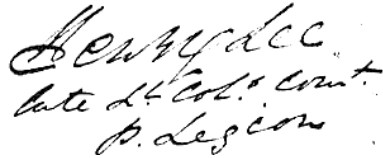 Henry Lee
late Lt Colo. Comt.
p. Legion